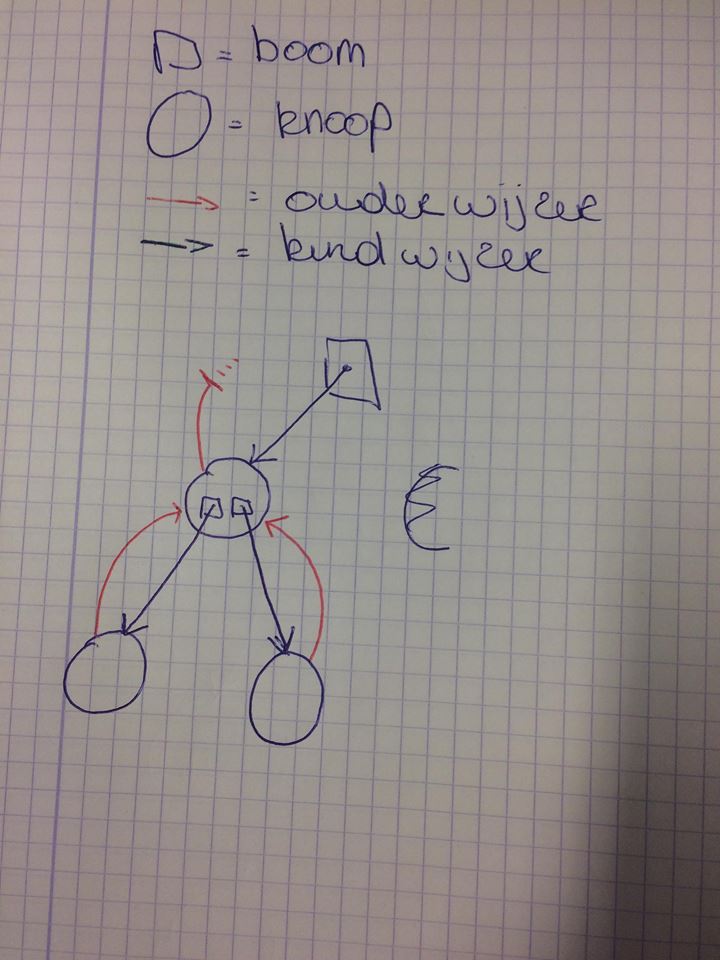 = boom
= knoop
= ouderwijzer
= kindwijzer